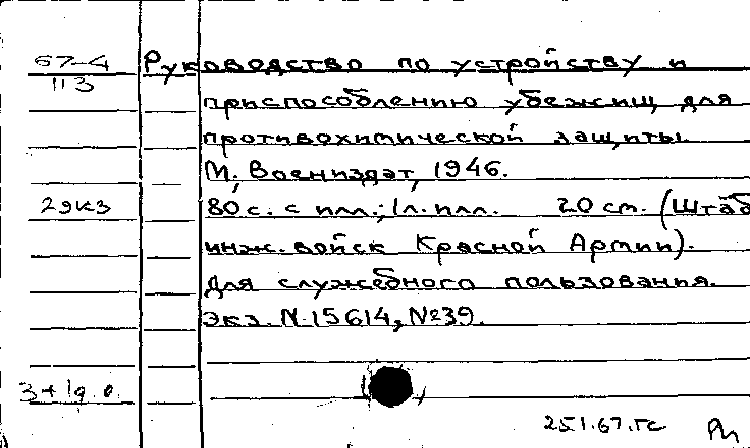 67-4 Руководство по устройству и
113
приспособлению убежищ для
противохимической защиты.
М., Воениздат, 1946.
2экз 80 с. с илл.; 1 л. илл. 20 см. (Штаб
инж. войск Красной Армии).
Для служебного пользования.
Экз. N.15614, №39.
25.1.67.гс